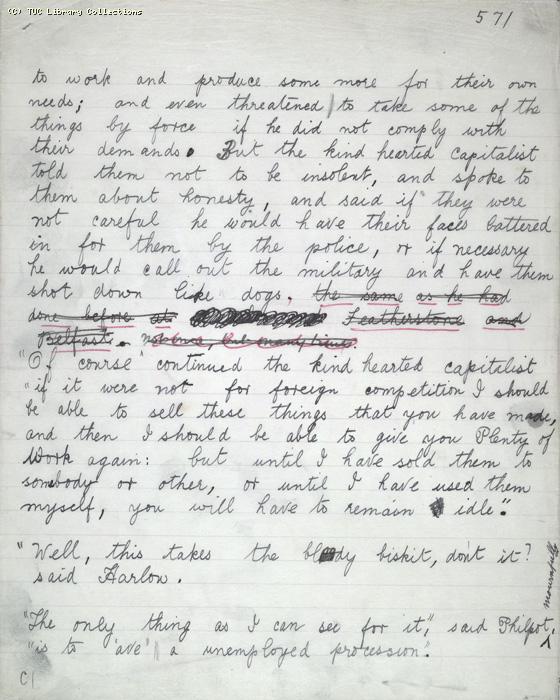 (C) TUC Library Collections
571
to work and produce some more for their own
needs; and even threatened to take some of the
things by force if he did not comply with
their demands. But the kind hearted Capitalist
told them not to be insolent, and spoke to
them about honesty, and said if they were
not careful he would have their faces battered
in for them by the police, or if necessary
he would call out the military and have them
shot down like dogs, the same as he had
done before at Featherstone and
Belfast.
"Of course" continued the kind hearted capitalist
"if it were not for foreign competition I should
be able to sell these things that you have made,
and then I should be able to give you Plenty of
Work again: but until I have sold them to
somebody or other, or until I have used them
myself, you will have to remain idle".
"Well, this takes the bloody biskit, don't it?
said Harlow.
"The only thing as I can see for it", said Philpot, mournfully
"is to 'ave' a unemployed procession".
C1